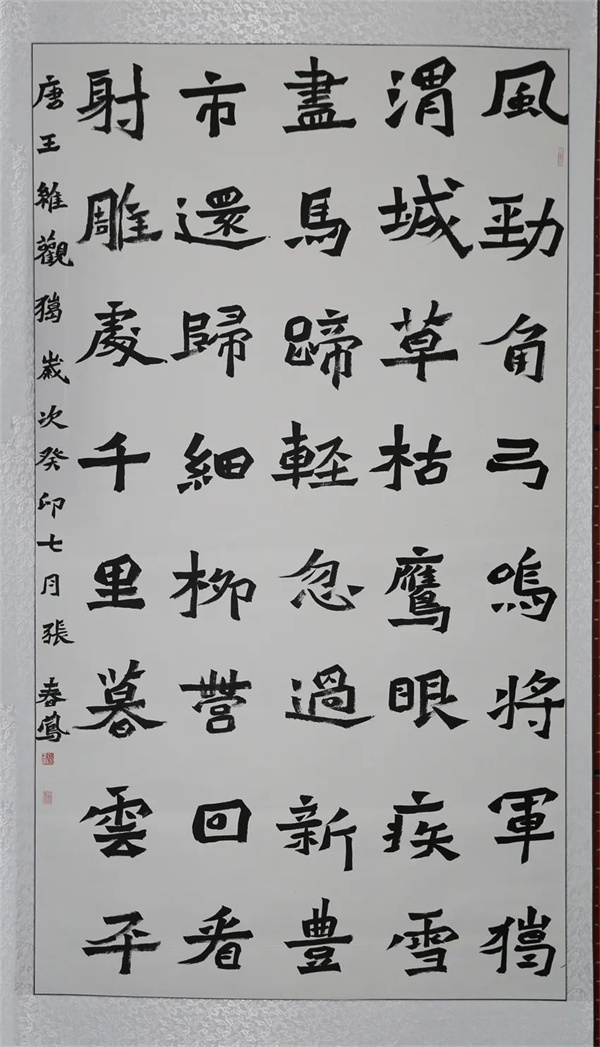 風勁角弓鳴将軍獦
渭城草枯鷹眼疾雪
盡馬蹄輕忽過新豊
市還歸細柳營回看
射雕處千里暮雲平
唐王維觀獦歲次癸卯七月張春鳳